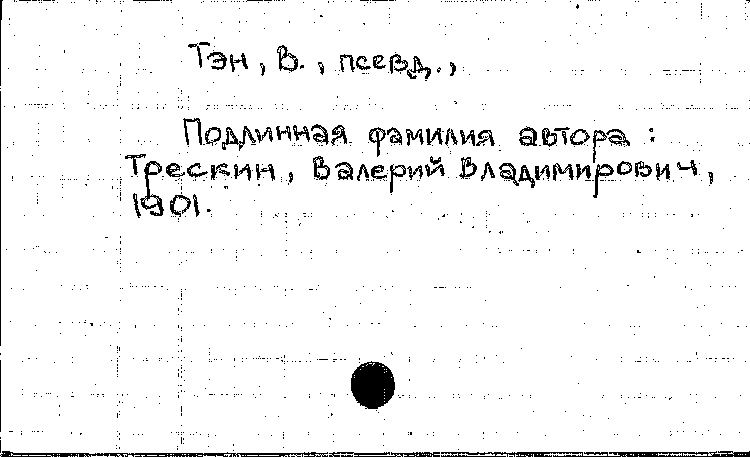 Тэн, В., псевд.,
Подлинная фамилия автора:
Трескин, Валерий Владимирович,
1901.